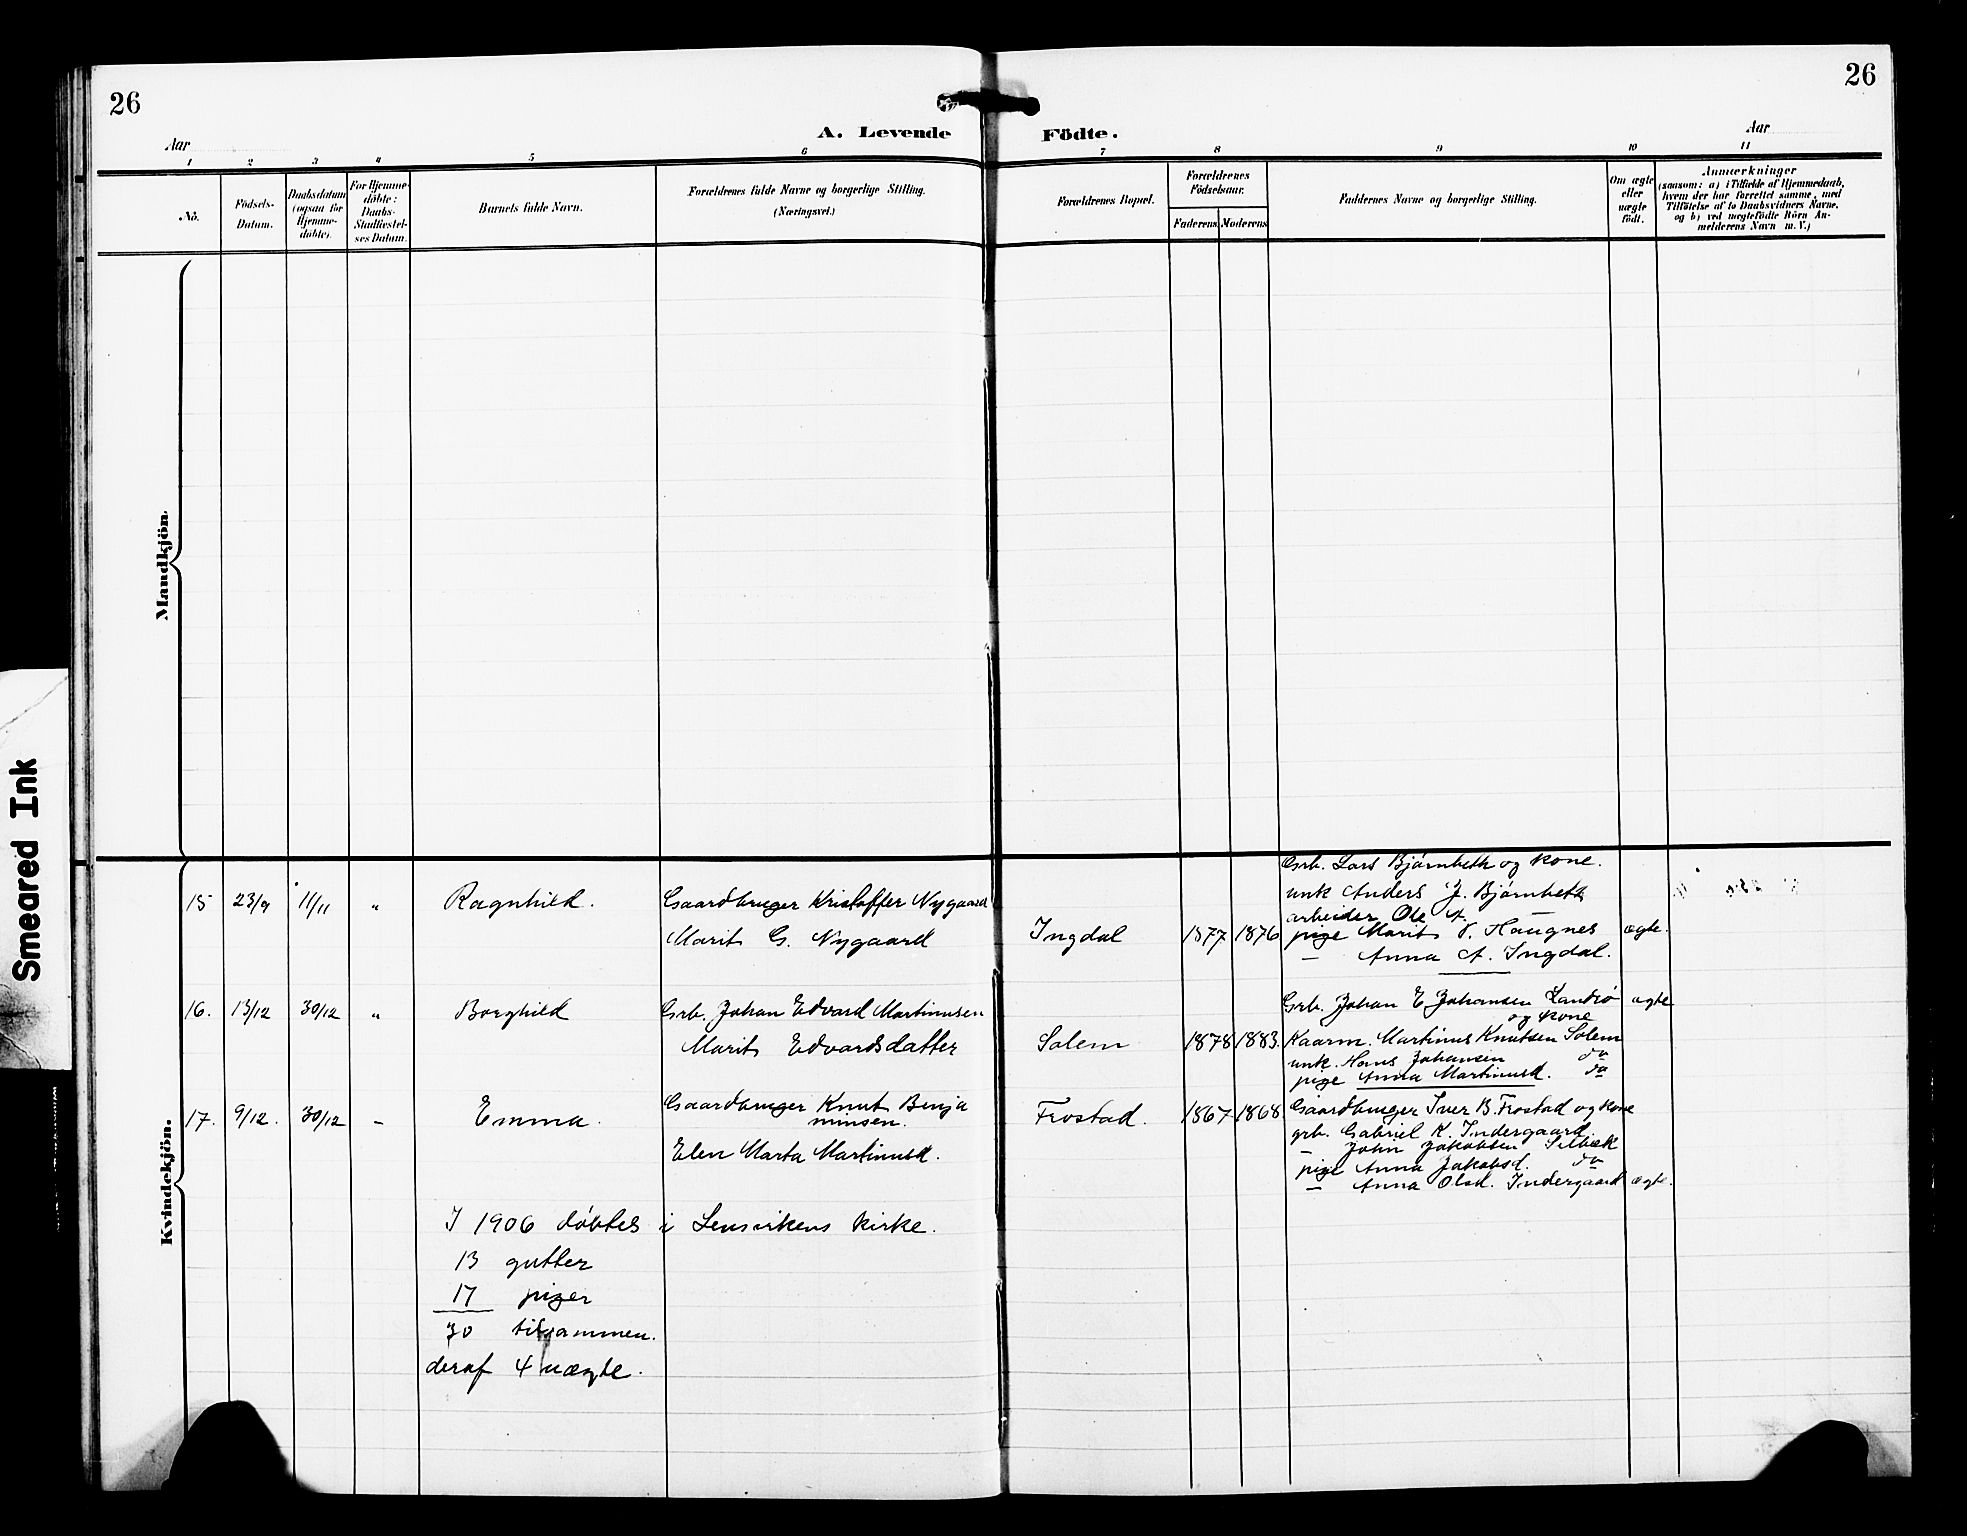 26
26
Aar
A. Levende
Födte.
Aar
1 2 3 4 5 6 7 8 9 10 11
No.
Födsels-
Datum.
Daabsdatum
(ogsaa for
Hjemme-
döbte).
For Hjemme-
döbte:
Daabs-
Stadfæstel-
ses Datum.
Barnets fulde Navn.
Forældrenes fulde Navne og borgerlige Stilling.
(Næringsvei.)
Forældrenes Bopæl.
Forældrenes
Födselsaar.
Faderens
Moderens
Faddernes Navne og borgerlige Stilling.
Om ægte
eller
uægte
födt.
Anmærkninger
(saasom: a) i Tilfælde af Hjemmedaab,
hvem der har forrettet samme, med
Tilföielse af to Daabsvidners Navne,
og b) ved uægtefödte Börn An-
melderens Navn m. V.)
Mandkjön.
Kvindekjön.
15 23/9 11/11 " Ragnhild.
Gaardbruger Kristoffer Nygaard
Marit G. Nygaard
Ingdal 1877 1876
Grb. Lars Bjørnbeth og kone.
unk Anders J. Bjørnbeth
arbeider Ole A.
pige Marit Haugnes
— Anna A. Ingdal.
ægte.
16. 13/12 30/12 " Borghild
Grb. Johan Edvard Martinusen
Marit Edvardsdatter
Solem 1878 1883.
Grb. Johan E Johansen Landrø
og kone
Kaarm. Martinus Knutsen Solem
unk. Hans Johansen do
pige Anna Martinusd. do
ægte
17. 9/12. 30/12 – Emma.
Gaardbruger Knut Benja
minsen.
Elen Marta Martinusd.
Frostad. 1867 1868
Gaardbruger Iver B. Frostad og kone
grb. Gabriel K. Indergaard
— John Jakobsen Selbæk
pige Anna Jakobsd. do
— Anna Olsd. Indergaard
ægte.
I 1906 døbtes i Lensvikens kirke.
13 gutter
17 piger
30 tilsammen.
deraf 4 uægte.
Smeared Ink